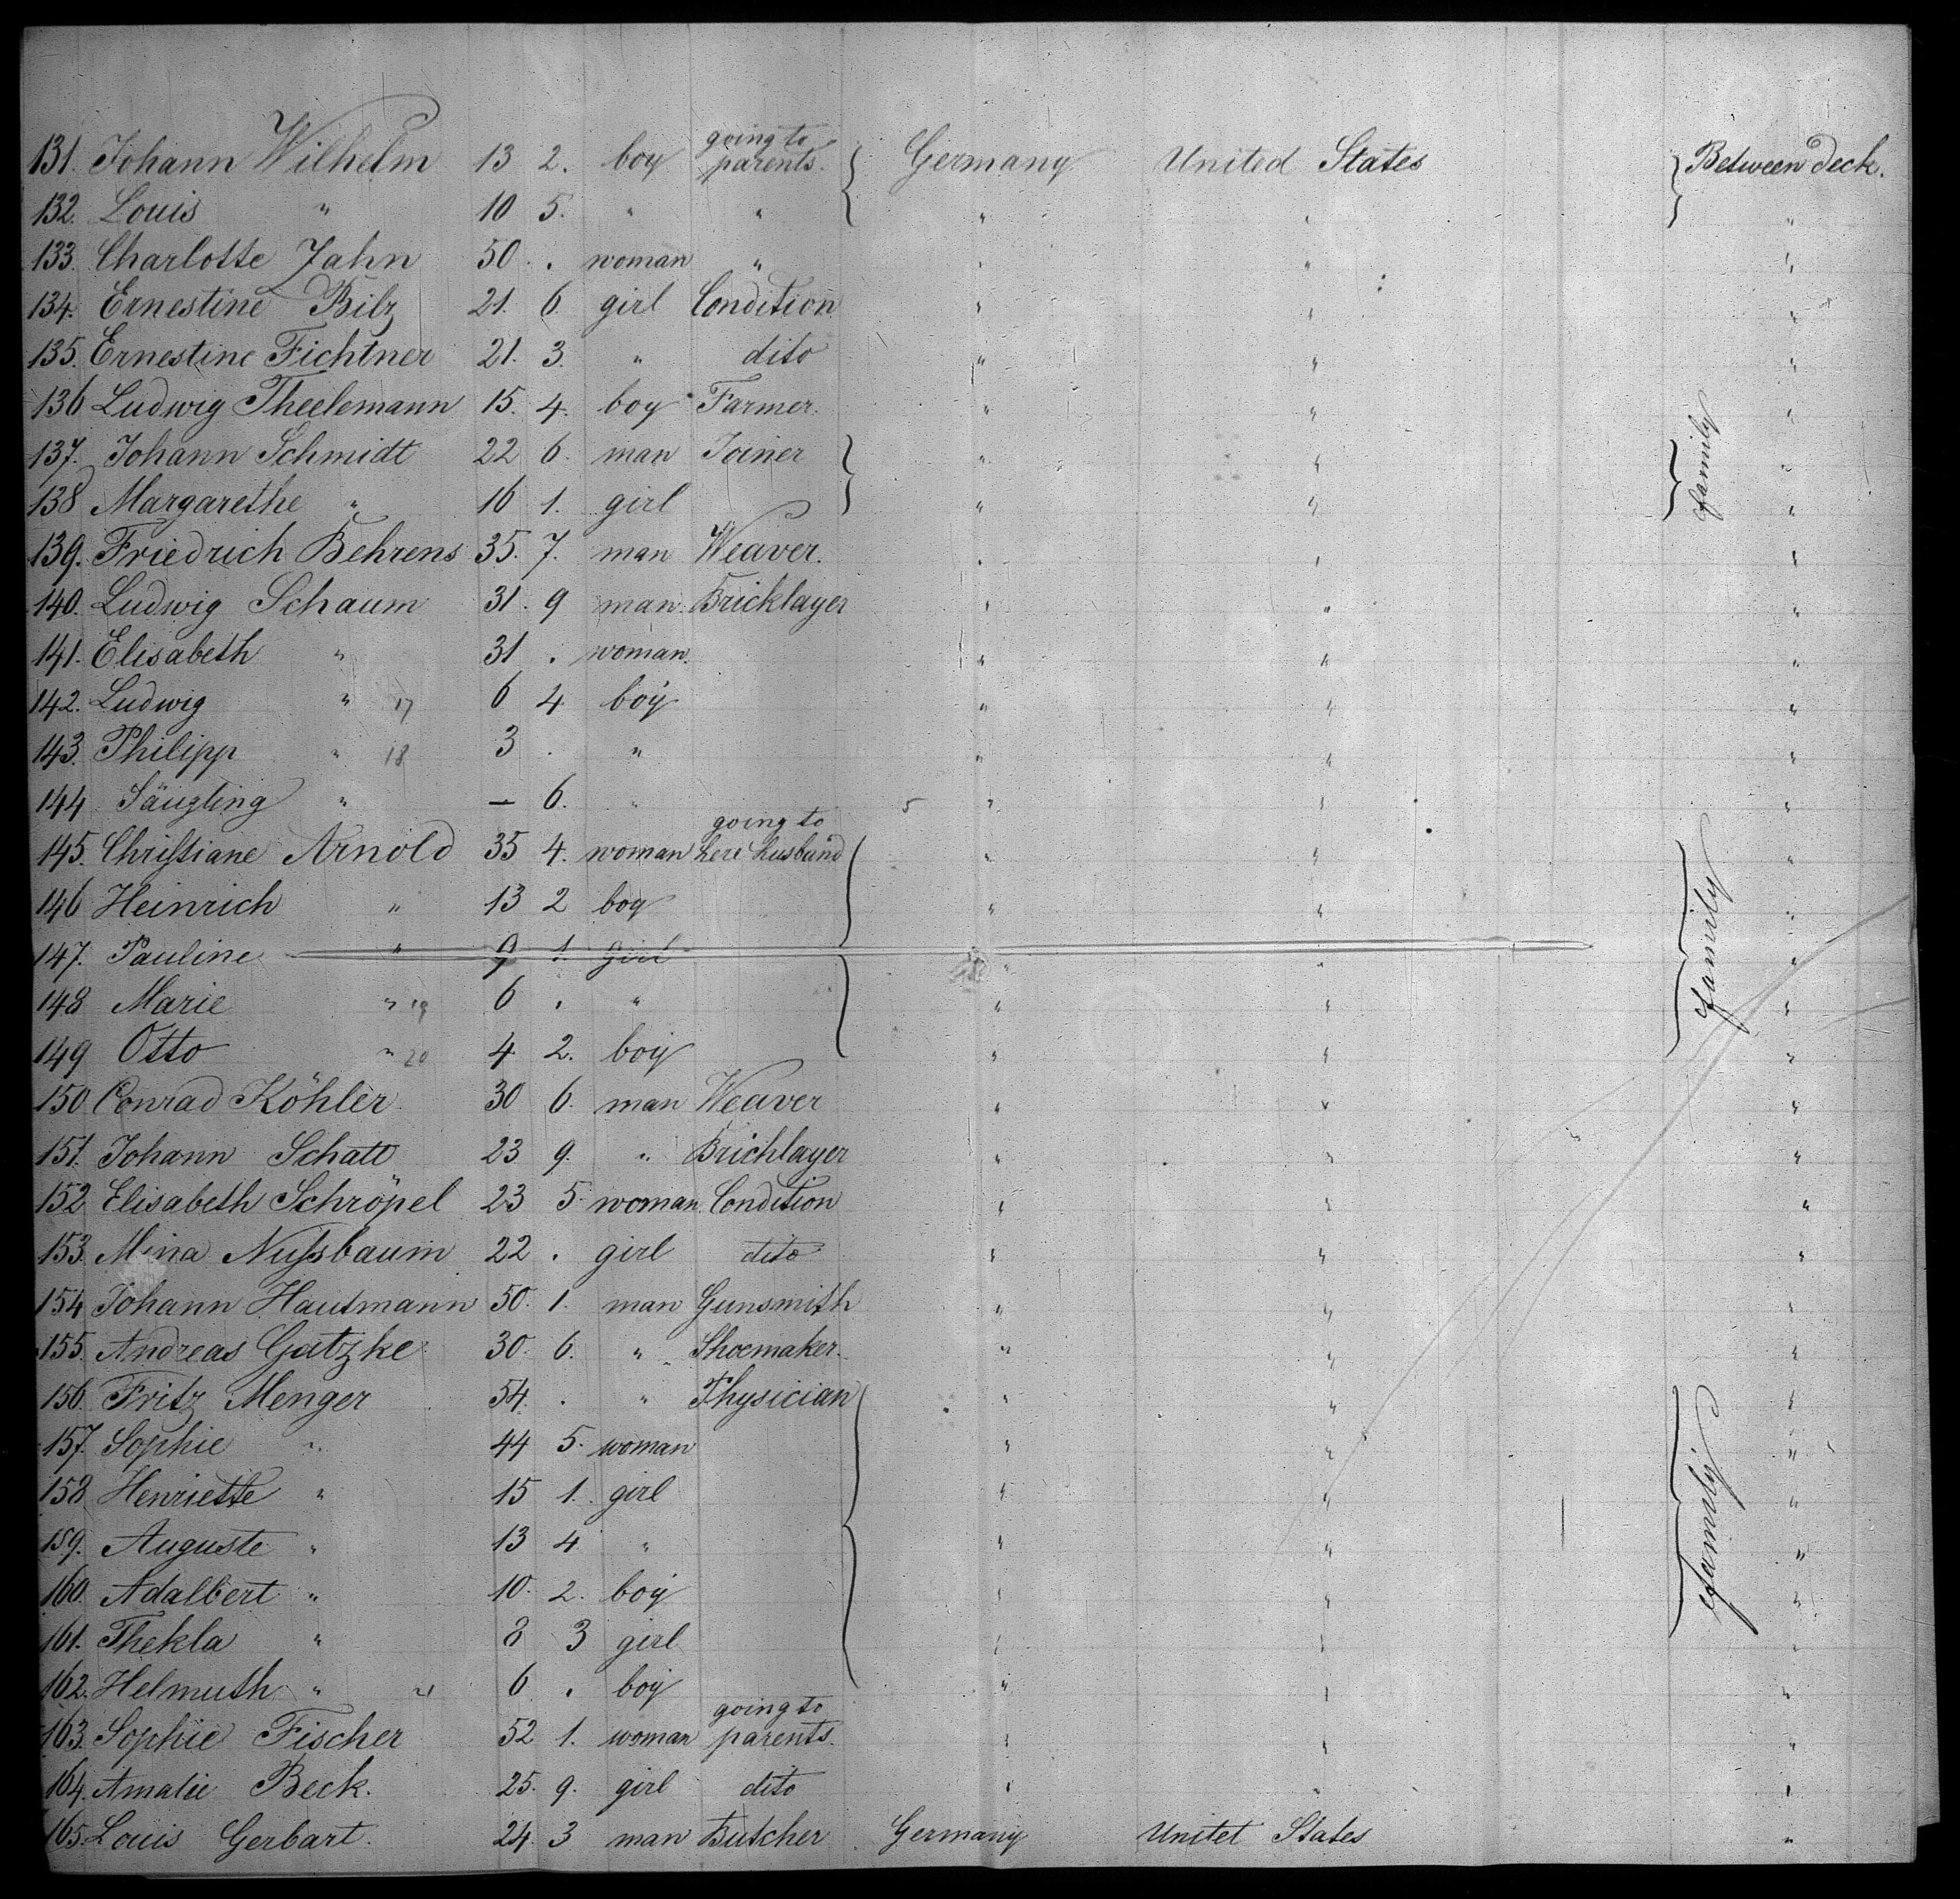 131. Johann Wilhelm 13 2. boy going to parents. Germany United States Between deck.
132. Louis " 10 5. " " " " "
133. Charlotte Jahn 50 . woman " " " "
134. Ernestine Bilz 21. 6. girl Condition " " "
135. Ernestine Fichtner 21. 3. " dito " " "
136 Ludwig Theelemann 15. 4. boy Farmer. " " "
137. Johann Schmidt 22 6. man Joiner " " family "
138 Margarethe " 16 1. girl " " "
139. Friedrich Behrens 35. 7. man Weaver. " " "
140. Ludwig Schaum 31. 9 man. Bricklayer " " "
141. Elisabeth " 31 . woman. " " "
142. Ludwig " 17 6 4 boy " " "
143. Philipp " 18 3 . " " " "
144 Säugling " — 6. " 5 " " "
145. Christiane Arnold 35 4. woman going to here husband " " "
146 Heinrich " 13 2 boy " " family "
147. Pauline " 9 1. girl " " "
148 Marie " 19 6 . " " " "
149 Otto " 20 4. 2. boy " " "
150 Conrad Köhler. 30 6. man Weaver " " "
151. Johann Schatt 23 9. " Brichlayer " " "
152 Elisabeth Schröpel 23 5 woman. Condition " " "
153. Mina Nußbaum 22 . girl dito " " "
154 Johann Hautmann 50. 1. man Gunsmith " " "
155. Andreas Gatzke 30. 6. " Shoemaker. " " "
156. Fritz Menger 54. . " Physician " " "
157. Sophie " 44 5. woman " " "
158 Henriette " 15 1. girl " " "
159. Auguste " 13 4 " " " family "
160. Adalbert " 10. 2. boy " " "
161. Thekla " 8 3 girl " " "
162. Helmuth " 21 6 . boy " " "
163. Sophie Fischer 52 1. woman going to parents. " " "
164. Amalie Beck. 25. 9. girl dito " " "
165. Louis Gerbart. 24. 3 man Butcher Germany Unitet States "